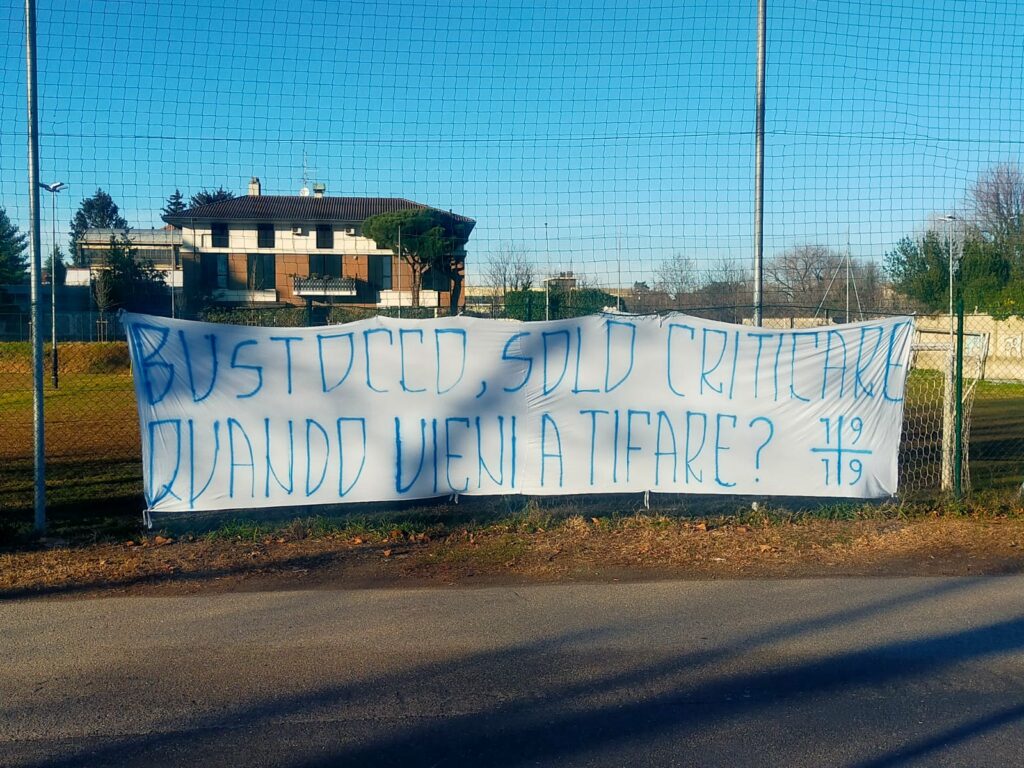 BUSTOCCO, SOLO CRITICARE
QUANDO VIENI A TIFARE? 19
19